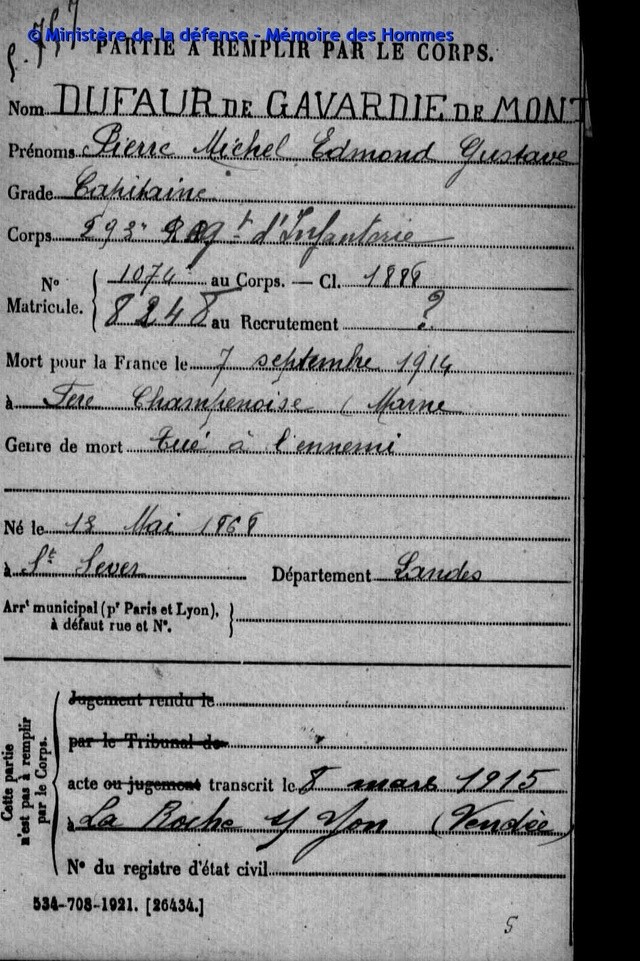 © Ministère de la défense - Mémoire des Hommes
PARTIE À REMPLIR PAR LE CORPS.
Nom DUFAUR DE GAVARDIE DE MONT
Prénoms Pierre Michel Edmond Gustave
Grade Capitaine
Corps 293e Régt d'Infanterie
No Matricule. 1074 au Corps. — Cl. 1888
8248 au Recrutement ?
Mort pour la France le 7 septembre 1914
à Fère Champenoise (Marne
Genre de mort Tué à l'ennemi
Né le 13 Mai 1868
à St Sever Département Landes
Arrt municipal (pr Paris et Lyon),
à défaut rue et No.
Cette partie
n'est pas à remplir
par le Corps.
Jugement rendu le
par le Tribunal de
acte ou jugement transcrit le 8 mars 1915
à La Roche s/ Yon (Vendée)
No du registre d'état civil
534-708-1921. [26434.]
5